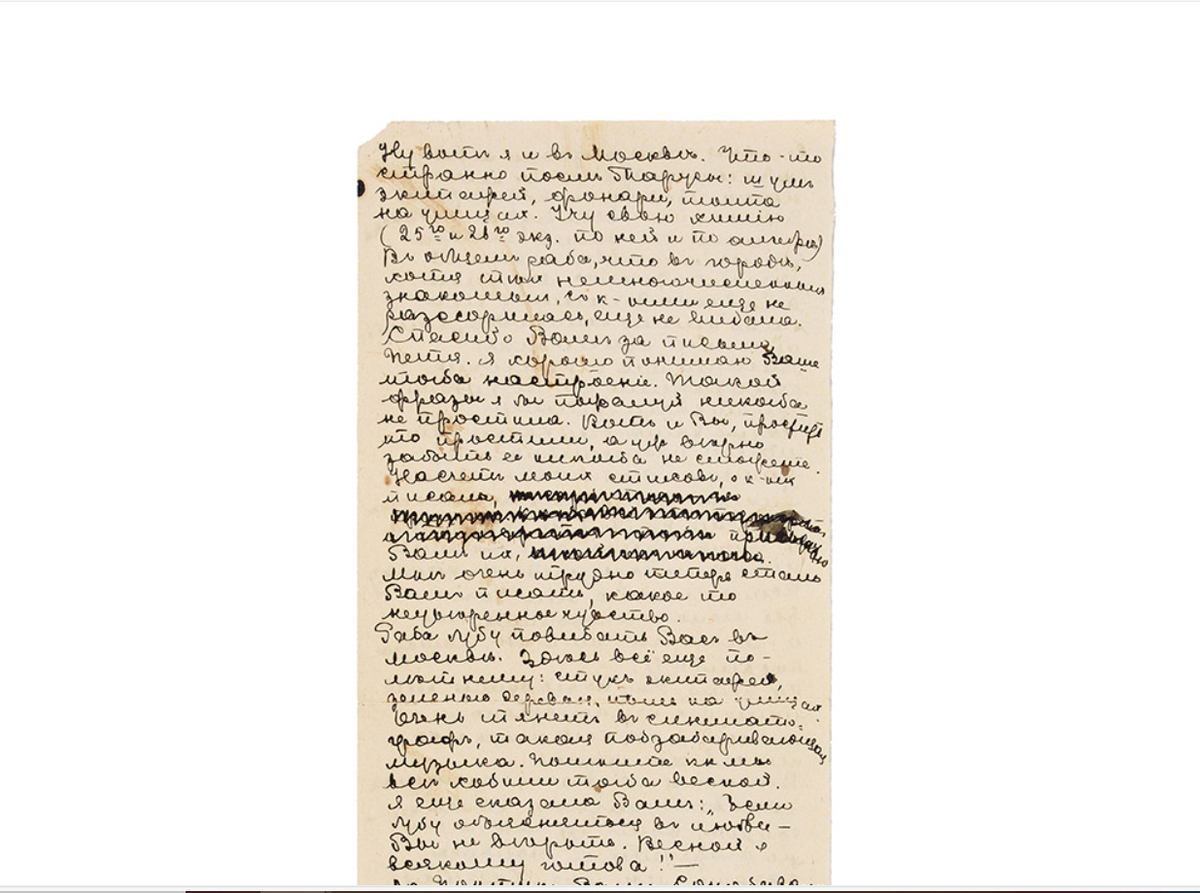 Ну вотъ я и въ Москвѣ. Что-то
странно послѣ Тарусы: шумъ
экипажей, фонари, толпа
на улицахъ. Учу свою химiю
(25го и 26го экз. по ней и по алгебрѣ)
Въ общемъ рада, что въ городѣ,
хотя тѣхъ немногочисленныхъ
знакомыхъ, съ к-ыми еще не
разссорилась, еще не видала.
Спасибо Вамъ за письма,
Петя. Я хорошо понимаю Ваше
тогда настроенiе. Такой
фразы я бы пожалуй никогда
не простила. Вотъ и Вы, простить
то простили, а ужъ вѣрно
забыть ее никогда не сможете.
Насчетъ моихъ стиховъ, о к-ыхъ
писала,
Вамъ ихъ,
Мнѣ очень трудно теперь стало
Вамъ писать, какое то
неувѣренное чувство.
Рада буду повидать Васъ въ
Москвѣ. Здѣсь всё еще по-
лѣтнему: стукъ экипажей,
зеленыя деревья, пыль на улицахъ.
Очень тянетъ въ синемато-
графъ, такая подзадоривающая
музыка. Помните какъ мы
всѣ ходили тогда весной.
Я еще сказала Вамъ: „Если
буду объясняться въ любви —
Вы не вѣрьте. Весной я
всякому готова!" —